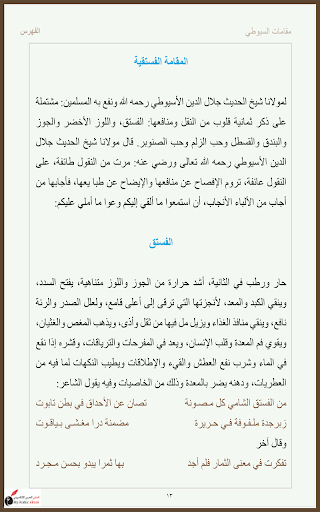 مقامات السيوطي
الفهرس
المقامة الفستقية
لمولانا شيخ الحديث جلال الدين الأسيوطي رحمه الله ونفع به المسلمين: مشتملة
على ذكر ثمانية قلوب من النقل ومنافعها: الفستق، واللوز الأخضر والجوز
والبندق والقسطل وحب الزلم وحب الصنوبر. قال مولانا شيخ الحديث جلال
الدين الأسيوطي رحمه الله تعالى ورضي عنه: مرت من النقول طائفة، على
النقول عائفة، تروم الإفصاح عن منافعها والإيضاح عن طبا يعها، فأجابها من
أجاب من الألباء الأنجاب، أن استمعوا ما ألقي إليكم وعوا ما أملي عليكم:
الفستق
حار ورطب في الثانية، أشد حرارة من الجوز واللوز متناهية، يفتح السدد،
وينقي الكبد والمعد، لأنجزتها التي ترقى إلى أعلى قامع، ولعلل الصدر والرئة
نافع، وينقي منافذ الغذاء ويزيل مل فيها من ثقل وأذى، ويذهب المغص والغثيان،
ويقوي فم المعدة وقلب الإنسان، ويعد في المفرحات والترياقات، وقشره إذا نقع
في الماء وشرب نفع العطش والقيء والإطلاقات ويطيب النكهات لما فيه من
العطريات، ودهنه يضر بالمعدة وذلك من الخاصيات وفيه يقول الشاعر:
من الفستق الشامي كل مـصـونة تصان عن الأحداق في بطن تابوت
زبرجدة ملـفوفة فـي حـريرة مضمنة درا مغـشـى بـياقـوت
وقال آخر
تفكرت في معنى الثمار فلم أجد بها ثمرا يبدو بحسن مـجـرد
١٣